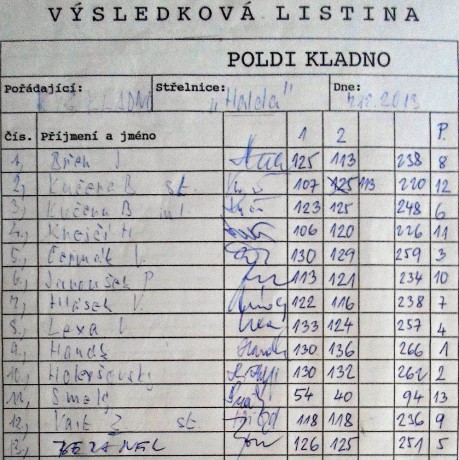 VÝSLEDKOVÁ LISTINA
POLDI KLADNO
Pořádající: KLADNO Střelnice: "Halda" Dne: 7.12.2013
Čís. Příjmení a jméno 1 2 P.
1, J. 125 113 238 8
2, Kučera B st. 107 125 113 220 12
3, Kučera B ml. 123 125 248 6
4, Krejčí M 106 120 226 11
5, Čermák V. 130 129 259 3
6, Janoušek P 113 121 234 10
7, Hlásek V. 122 116 238 7
8, Lexa V 133 124 257 4
9, 130 136 266 1
10, 130 132 262 2
11, Smelý 54 40 94 13
12, st 118 118 236 9
13, 126 125 251 5